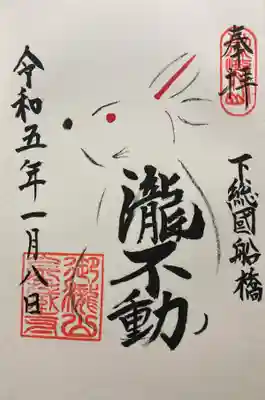 奉拝
下総國船橋
瀧不動
令和五年一月八日
御瀧山